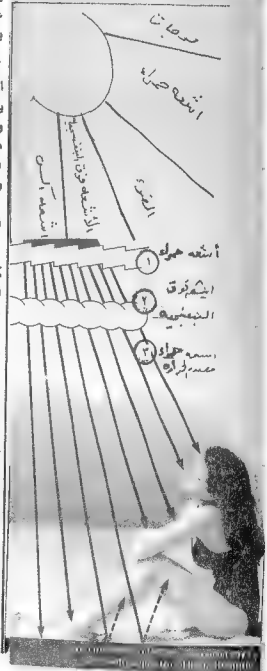 موجات
أشعه حمراء
الضوء
الأشعه فوق البنفسجيه
أشعه
أشعه حمراء
١
فوق
البنفسجيه
٢
أشعه حمراء
مصدر الحراره
٣